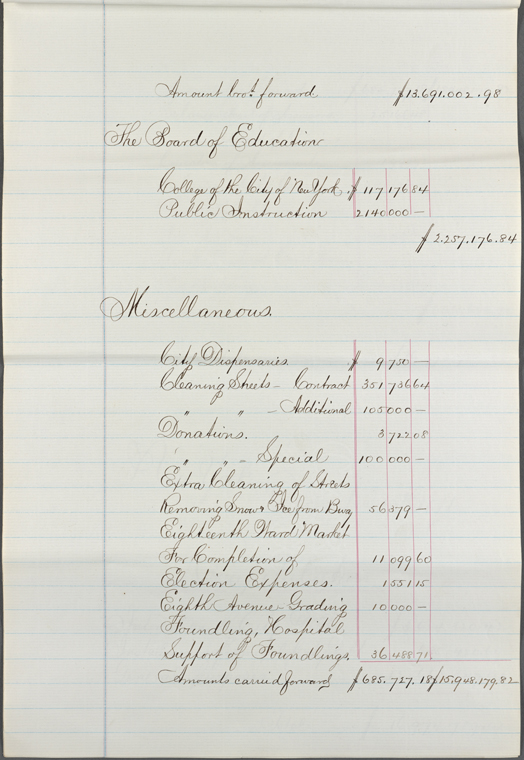 Amount bro't forward $13.691.002.98
The Board of Education
College of the City of New York $117 176 84
Public Instruction 2140 000 —
$2.257.176.84
Miscellaneous.
City Dispensaries. $9 750 —
Cleaning Streets - Contract 351 736 64
" " - Additional 105 000 —
Donations. 3 722 08
" " - Special 100 000 —
Extra Cleaning of Streets
Removing Snow & Ice from Bway 56 379 —
Eighteenth Ward Market
For Completion of 11 099 60
Election Expenses. 1 551 15
Eighth Avenue - Grading 10 000 —
Foundling, Hospital
Support of Foundlings. 36 488 71
Amounts carried forward $685.727.18 $15.948.179.82